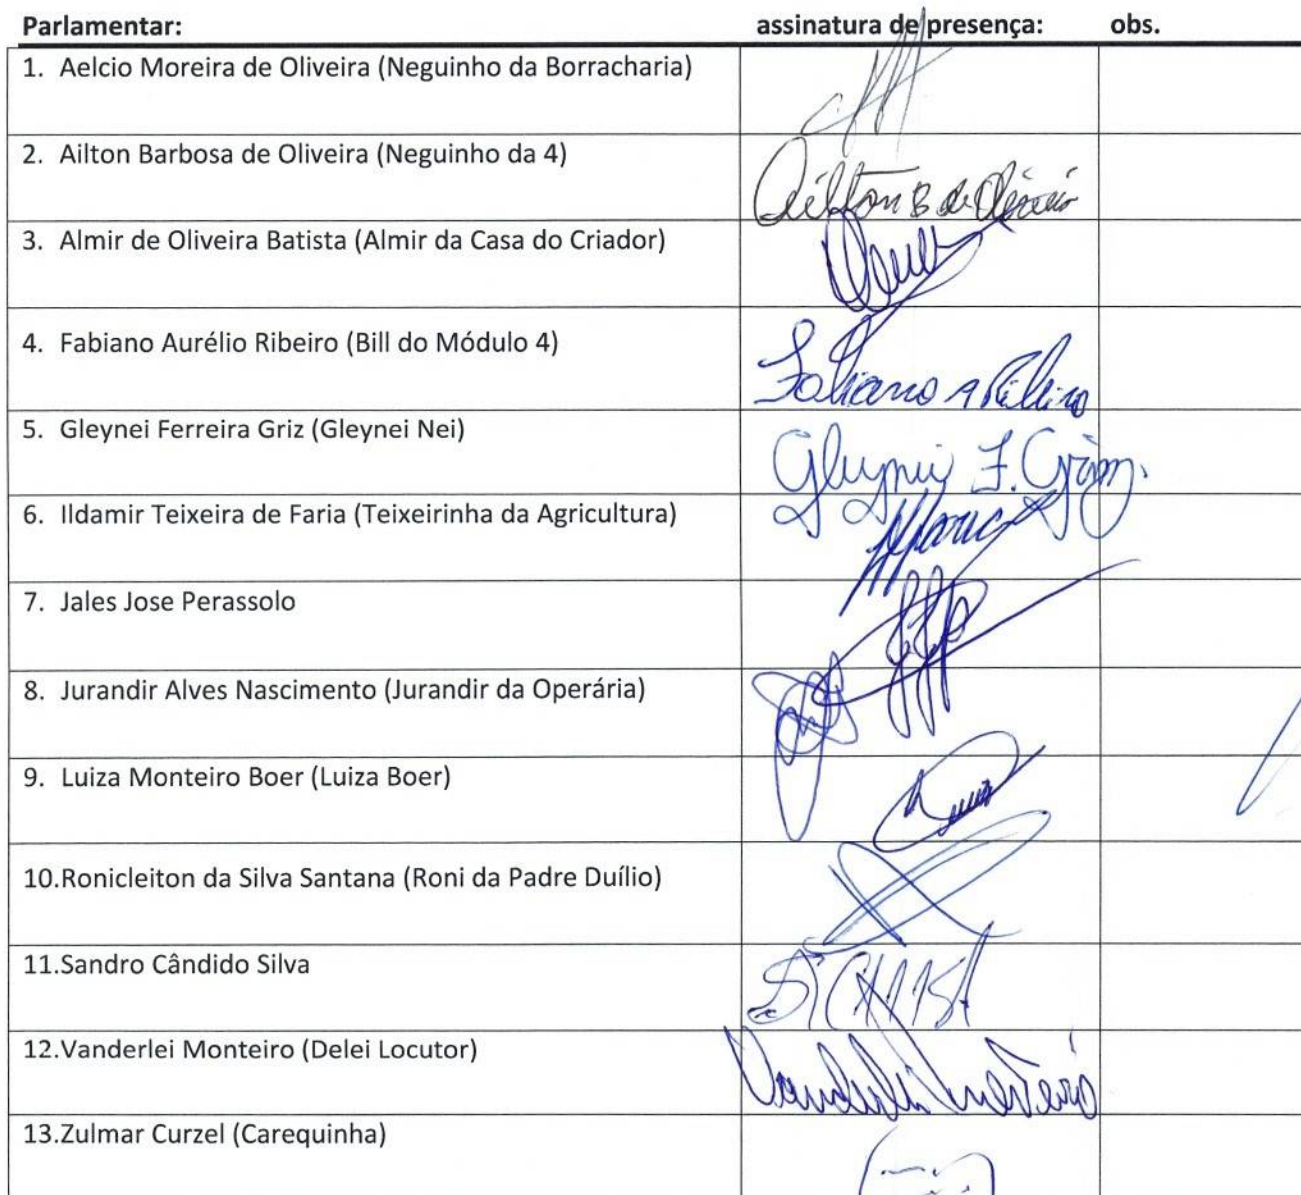 Parlamentar: assinatura de presença: obs.
1. Aelcio Moreira de Oliveira (Neguinho da Borracharia)
2. Ailton Barbosa de Oliveira (Neguinho da 4) Ailton B de Oliveira
3. Almir de Oliveira Batista (Almir da Casa do Criador)
4. Fabiano Aurélio Ribeiro (Bill do Módulo 4) Fabiano A Ribeiro
5. Gleynei Ferreira Griz (Gleynei Nei) Gleynei F. Griz
6. Ildamir Teixeira de Faria (Teixeirinha da Agricultura)
7. Jales Jose Perassolo
8. Jurandir Alves Nascimento (Jurandir da Operária)
9. Luiza Monteiro Boer (Luiza Boer)
10.Ronicleiton da Silva Santana (Roni da Padre Duílio)
11.Sandro Cândido Silva
12.Vanderlei Monteiro (Delei Locutor) Vanderlei Monteiro
13.Zulmar Curzel (Carequinha)